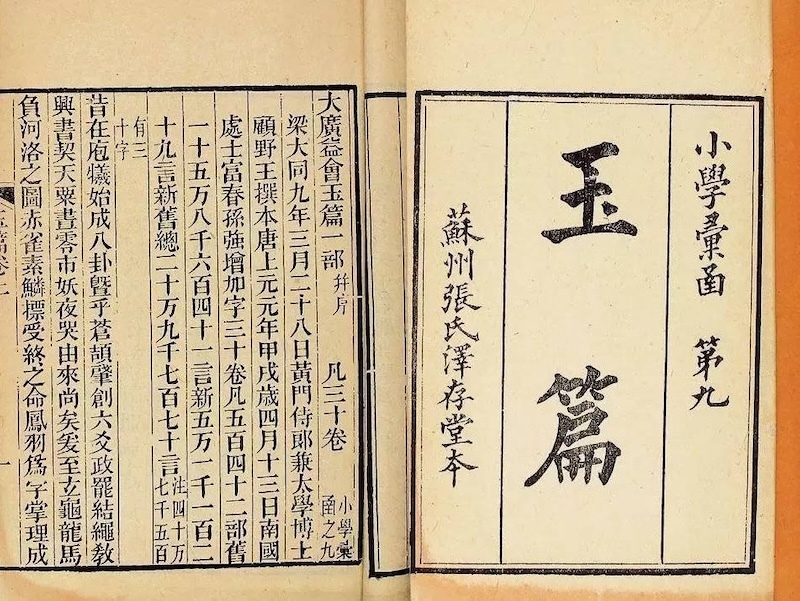 小學彙函 第九
玉篇
蘇州張氏澤存堂本
大廣益會玉篇一部 幷序 凡三十卷 小學彙函之九
梁大同九年三月二十八日黃門侍郎兼太學博士
顧野王撰本唐上元元年甲戌歲四月十三日南國
處士富春孫強增加字三十卷凡五百四十二部舊
一十五萬八千六百四十一言新五萬一千一百二
十九言新舊總二十萬九千七百七十言 注四十萬七千五百
有三十字
昔在庖犧始成八卦曁乎蒼頡肇創六爻政罷結繩敎
興書契天粟晝零市妖夜哭由來尚矣爰至玄龜龍馬
負河洛之圖赤雀素鱗摽受終之命鳳羽爲字掌理成
玉篇卷上
一